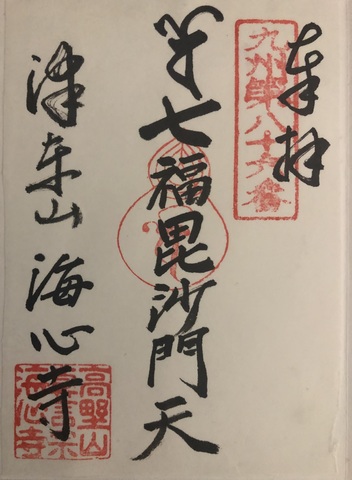 奉拝
九州第八十六番
七福毘沙門天
津東山 海心寺
高野山
真言宗
海心寺